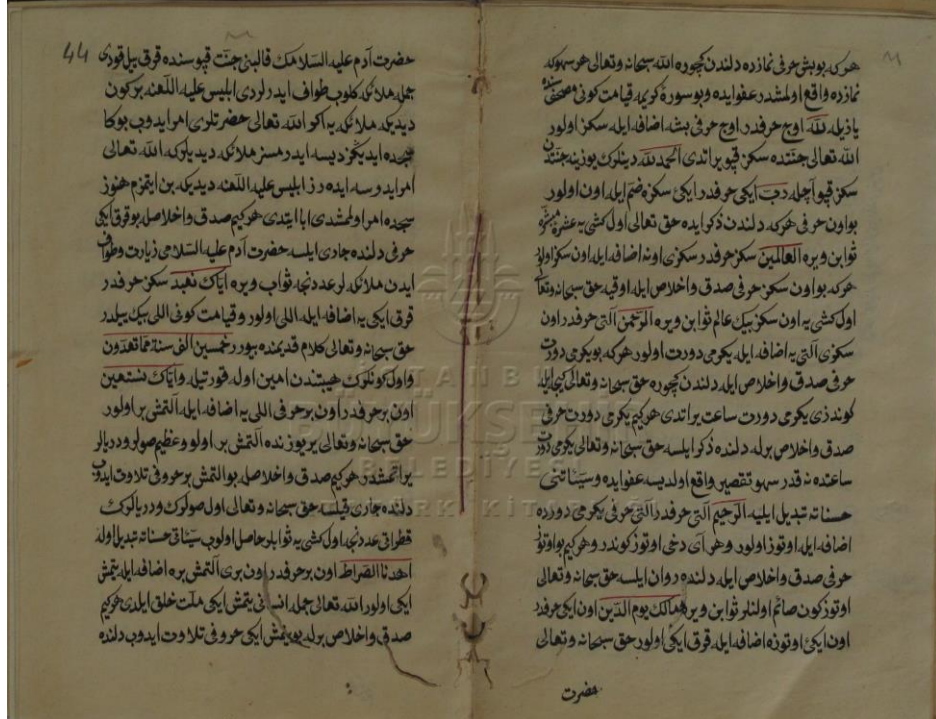 هركه بو بش حرفی نمازده دلندن كچوره الله سبحانه وتعالی هر سهوكه
نمازده واقع اولمشدر عفو ایده وبو سورهٔ كریمه قیامت كونی
یازیله لله اوچ حرفدر اوچ حرفی بشه اضافه ایله سكز اولور
الله تعالی جنتده سكز قپو یراتدی الحمد لله دینلرك یوزینه جنتدن
سكز قپو آچله رب ایكی حرفدر ایكی سكزه ضم ایله اون اولور
بو اون حرفی هركه دلندن ذكر ایده حق تعالی اول كشی یه عشرهٔ مبشره
ثوابن ویره العالمین سكز حرفدر سكزی اونه اضافه ایله اون سكز اولور
هركه بو اون سكز حرفی صدق واخلاص ایله اوقیه حق سبحانه وتعالی
اول كشی یه اون سكز بیك عالم ثوابن ویره الرحمن آلتی حرفدر اون
سكزی آلتی یه اضافه ایله یكرمی دورت اولور هركه بو یكرمی دورت
حرفی صدق واخلاص ایله دلندن كچوره حق سبحانه وتعالی كیجه ایله
كوندزی یكرمی دورت ساعت یراتدی هر كیم یكرمی دورت حرفی
صدق واخلاص برله دلنده ذكر ایلسه حق سبحانه وتعالی یكرمی دورت
ساعتده نه قدر سهو تقصیر واقع اولدیسه عفو ایده وسیئاتنی
حسناته تبدیل ایلیه الرحیم آلتی حرفدر آلتی حرفی یكرمی دورده
اضافه ایله اوتوز اولور وهر آی دخی اوتوز كوندر وهر كیم بو اوتوز
حرفی صدق واخلاص ایله دلنده روان ایلسه حق سبحانه وتعالی
اوتوز كون صائم اولنلر ثوابن ویره مالك یوم الدین اون ایكی حرفدر
اون ایكی اوتوزه اضافه ایله قرق ایكی اولور حق سبحانه وتعالی
حضرت
44
حضرت آدم علیه السلامك قالبنی جنت قپوسنده قرق ییل قودی
جمله ملائكه كلوب طواف ایدرلردی ابلیس علیه اللعنه بر كون
دیدیكه ملائكه یه اكر الله تعالی حضرتلری امر ایدوب بوكا
سجده ایدیكز دیسه ایدرمسز ملائكه دیدیلركه الله تعالی
امر ایدرسه ایده رز ابلیس علیه اللعنه دیدیكه بن ایتمزم هنوز
سجده امر اولمشدی ابا ایتدی هر كیم صدق واخلاصله بو قرق ایكی
حرفی دلنده جاری ایلسه حضرت آدم علیه السلامی زیارت وطواف
ایدن ملائكه لر عددنجه ثواب ویره ایاك نعبد سكز حرفدر
قرق ایكی یه اضافه ایله اللی اولور وقیامت كونی اللی بیك ییلدر
حق سبحانه وتعالی كلام قدیمنده بیورر خمسین الف سنة مما تعدون
واول كونلرك هیبتندن امین اوله قورتیله وایاك نستعین
اون بر حرفدر اون بر حرفی اللی یه اضافه ایله آلتمش بر اولور
حق سبحانه وتعالی یر یوزنده آلتمش بر اولو وعظیم صولر ودریالر
یراتمشدر هركیم صدق واخلاصله بو آلتمش بر حروفی تلاوت ایدوب
دلنده جاری قیلسه حق سبحانه وتعالی اول صولرك ودریالرك
قطراتی عددنجه اول كشی یه ثوابلر حاصل اولوب سیئاتی حسناته تبدیل اوله
اهدنا الصراط اون بر حرفدر اون بری آلتمش بره اضافه ایله یتمش
ایكی اولور الله تعالی جمله انسانی یتمش ایكی ملت خلق ایلدی هركیم
صدق واخلاص برله بو یتمش ایكی حروفی تلاوت ایدوب دلنده
İSTANBUL
BÜYÜKŞEHİR
BELEDİYESİ
ATATÜRK KİTAPLIĞI